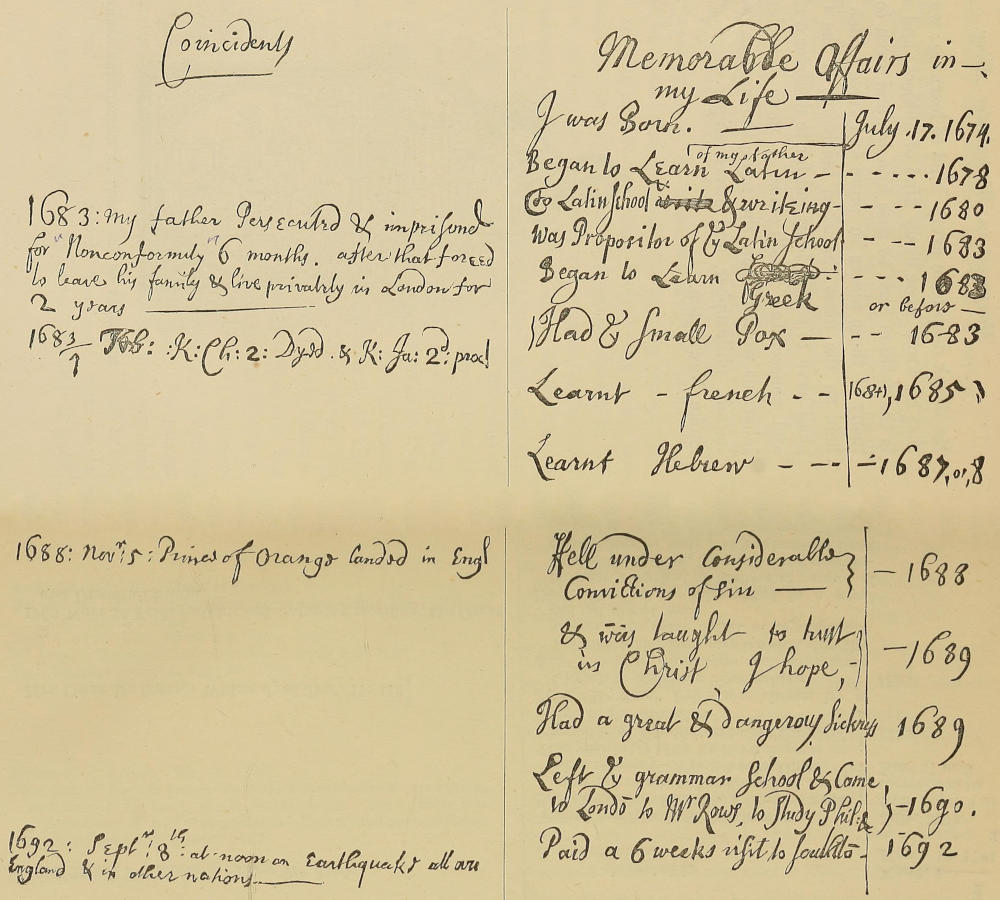 Coincidents
1683: my father Persecuted & imprisond
for Nonconformity 6 months. after that forced
to leave his family & live privately in London for
2 years
1683/4 Feb: K: Ch: 2: Dyed. & K: Ja: 2d: procl
1688: Novr. 5: Prince of Orange landed in Engl
1692: Septr. 8th: at noon an Earthquake all over
England & in other nations
Memorable Affairs in
my Life
I was Born. July .17. 1674.
of my father
Began to Learn Latin - - - - - 1678
To Latin School & writeing - - - 1680
Was Propositor of ye Latin School - - - 1683
Began to Learn - - - 1683
Greek or before
Had ye Small Pox - - - 1683
Learnt - french - - 1684, 1685
Learnt Hebrew - - - - 1687, or, 8
Fell under Considerable
Convictions of sin - 1688
& was taught to trust
in Christ I hope, - 1689
Had a great & dangerous Sickness 1689
Left ye grammar School & Came
to Londō to Mr Rows, to Study Phil: &c - 1690.
Paid a 6 weeks visit to Southtō - 1692